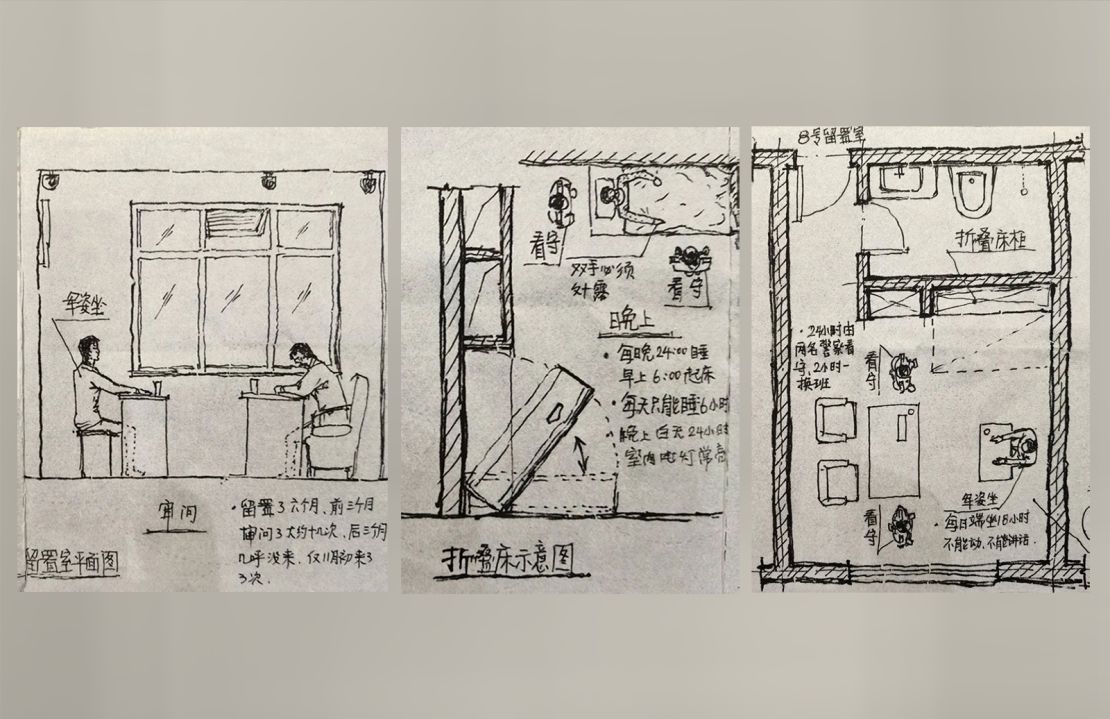 军姿坐
审问
留置室平面图
·留置了六个月、前三个月
审问了大约十几次、后三个月
几乎没来、仅11月初来了
3次.
看守
双手必须
外露
看守
晚上
·每晚24:00睡
早上6:00起床
·每天只能睡6小时
·晚上白天24小时
室内电灯常亮
折叠床示意图
8号留置室
折叠床柜
·24小时由
两名警察看
守、2小时一
换班
看守
看守
军姿坐
·每日端坐18小时
不能动、不能讲话.